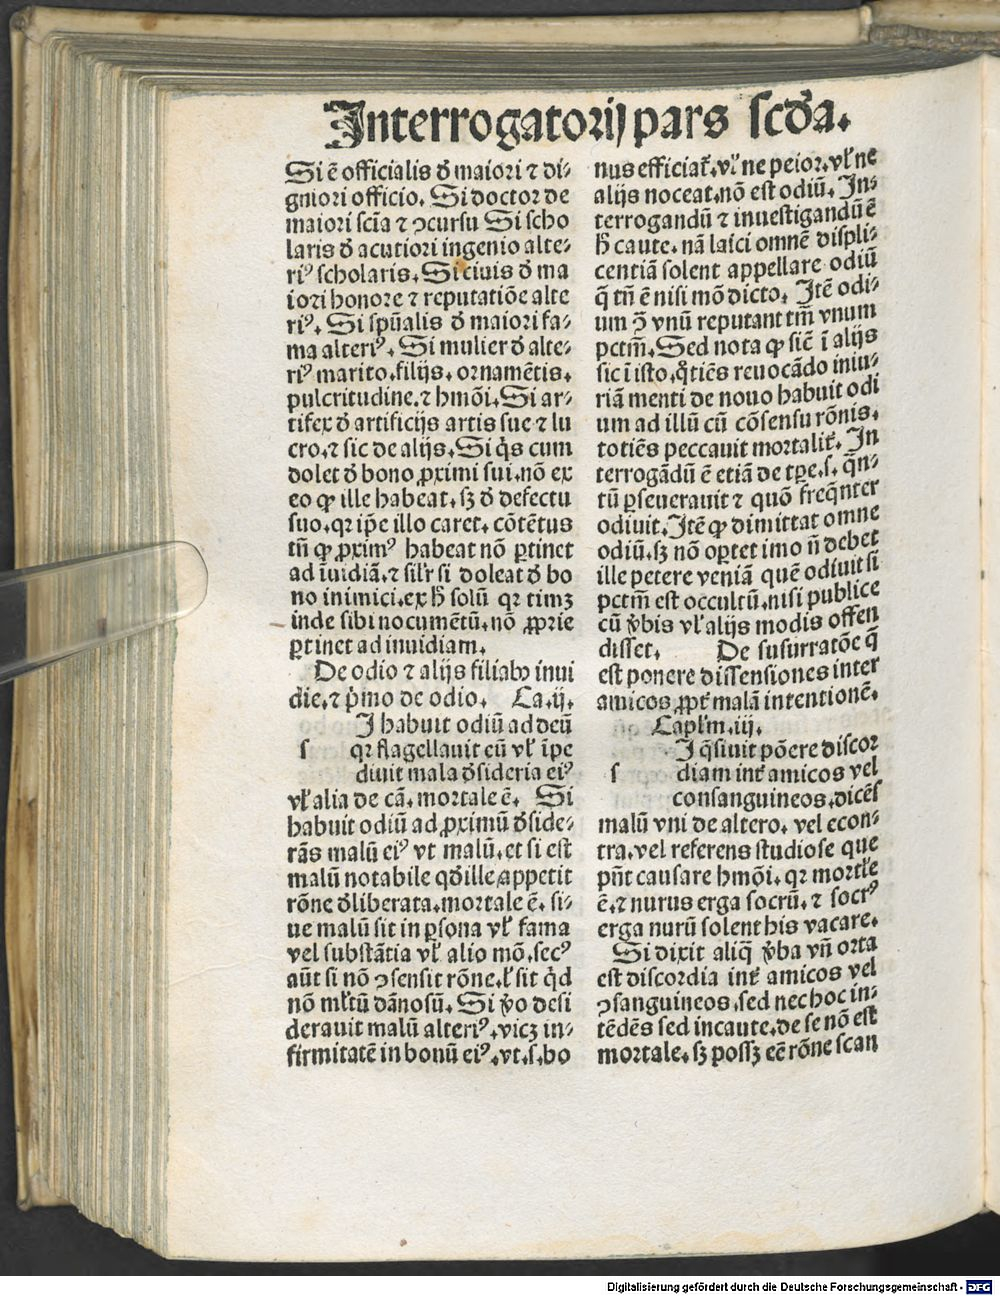 Interrogatorij pars scďa.
Si ē officialis ď maiori ⁊ di⸗
gniori officio. Si doctor de
maiori sciā ⁊ ꝯcursu Si scho
laris ď acutiori ingenio alte⸗
riꝰ scholaris. Si ciuis ď ma
iori honore ⁊ reputatiōe alte
riꝰ. Si spūalis ď maiori fa⸗
ma alteriꝰ. Si mulier ď alte⸗
riꝰ marito. filijs. ornamētis.
pulcritudine. ⁊ hmōi. Si ar⸗
tifex ď artificijs artis sue ⁊ lu
cro. ⁊ sic de alijs. Si q̇s cum
dolet ď bono ꝓximi sui. nō ex
eo ꝙ ille habeat. sꝫ ď defectu
suo. qꝛ ip̄e illo caret. cōtētus
tn̄ ꝙ ꝓximꝰ habeat nō ꝑtinet
ad īuidiā. ⁊ sil'r si doleat ď bo
no inimici. ex ħ solū qꝛ timꝫ
inde sibi nocumētū. nō ꝓprie
ꝑtinet ad inuidiam.
De odio ⁊ alijs filiabꝰ inui
die. ⁊ p̍mo de odio. Ca. ij.
s
I habuit odiū ad deū
qꝛ flagellauit eū vł īpe
diuit mala ďsideria eiꝰ
vł alia de cā. mortale ē. Si
habuit odiū ad ꝓximū ďside⸗
rās malū eiꝰ vt malū. et si est
malū notabile qďille appetit
rōne ďliberata. mortale ē. si⸗
ue malū sit in ꝑsona vł fama
vel substātia vł alio mō. secꝰ
aūt si nō ꝯsensit rōne. ł sit q̇d
nō mltū dānosū. Si v̊o desi
derauit malū alteriꝰ. vicꝫ in⸗
firmitatē in bonū eiꝰ. vt. s. bo
nus efficiat᷑. vł ne peior. vł ne
alijs noceat. nō est odiū. In⸗
terrogandū ⁊ inuestigandū ē
ħ caute. nā laici omnē displi⸗
centiā solent appellare odiū
q̄ tn̄ ē nisi mō dicto. Itē odi⸗
um ꝯ̄ vnū reputant tm̄ vnum
pctm̄. Sed nota ꝙ sic̄ ī alijs
sic ī isto. q̊tiēs reuocādo iniu⸗
riā menti de nouo habuit odi
um ad illū cū cōsensu rōnis.
totiēs peccauit mortalit᷑. In
terrogādū ē etiā de tꝑe. s. q̄n⸗
tū ꝑseuerauit ⁊ quō freq̄nter
odiuit. Itē ꝙ dimittat omne
odiū. sꝫ nō oꝑtet imo n̄ debet
ille petere veniā quē odiuit si
pctm̄ est occultū. nisi publice
cū v̊bis vł alijs modis offen
disset. De susurratōe q̄
est ponere dissensiones inter
amicos ꝓpt᷑ malā intentionē.
Capl'm. iij.
s
I q̄siuit pōere discor
diam int᷑ amicos vel
consanguineos. dicēs
malū vni de altero. vel econ⸗
tra. vel referens studiose que
pn̄t causare hmōi. qꝛ mortłe
ē. ⁊ nurus erga socrū. ⁊ socrꝰ
erga nurū solent his vacare.
Si dixit aliq̄ v̊ba vn̄ orta
est discordia int᷑ amicos vel
ꝯsanguineos. sed nec hoc in⸗
tēdēs sed incaute. de se nō est
mortale. sꝫ possꝫ eē rōne scan
Digitalisierung gefördert durch die Deutsche Forschungsgemeinschaft - DFG